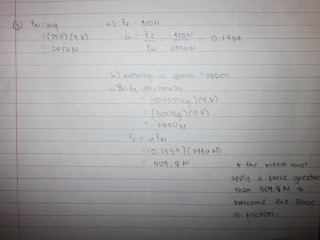 ③ FN = mg
= (250)(9.8)
= 2450 N
a) Ff = 425N
μ = Ff / FN = 425N / 2450N = 0.1734
b) nothing is gonna happen
= (50+250kg)(9.8)
= (300kg)(9.8)
= 2940 N
Ff = μFN
= (0.1734)(2940 N)
= 509.8 N
* the mover must
apply a force greater
than 509.8 N to
overcome the force
of friction.